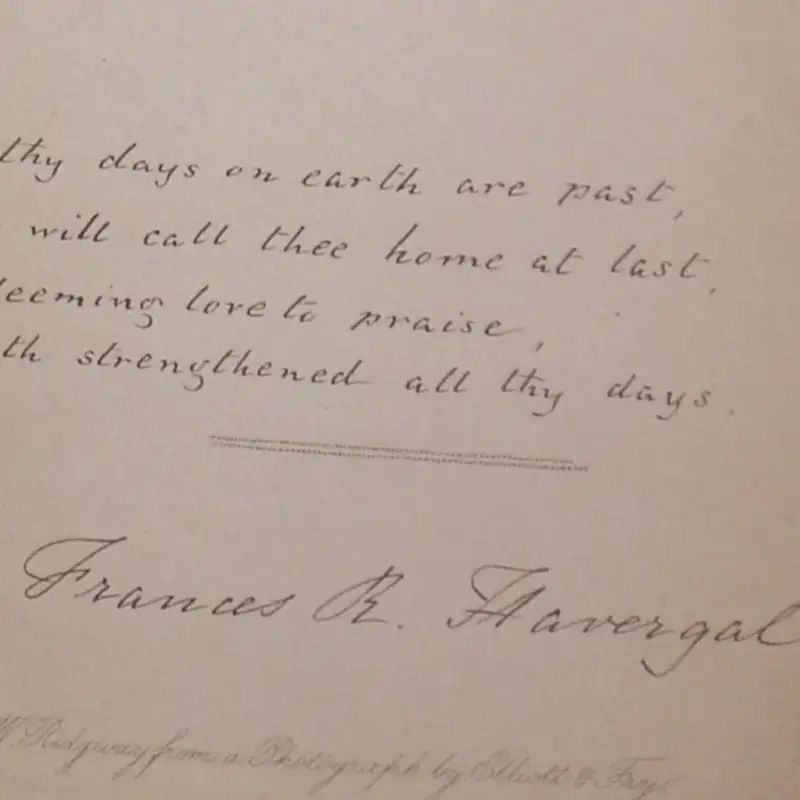 thy days on earth are past,
will call thee home at last,
deeming love to praise,
th strengthened all thy days.
Frances R. Havergal
W Ridgway from a Photograph by Elliott & Fry.